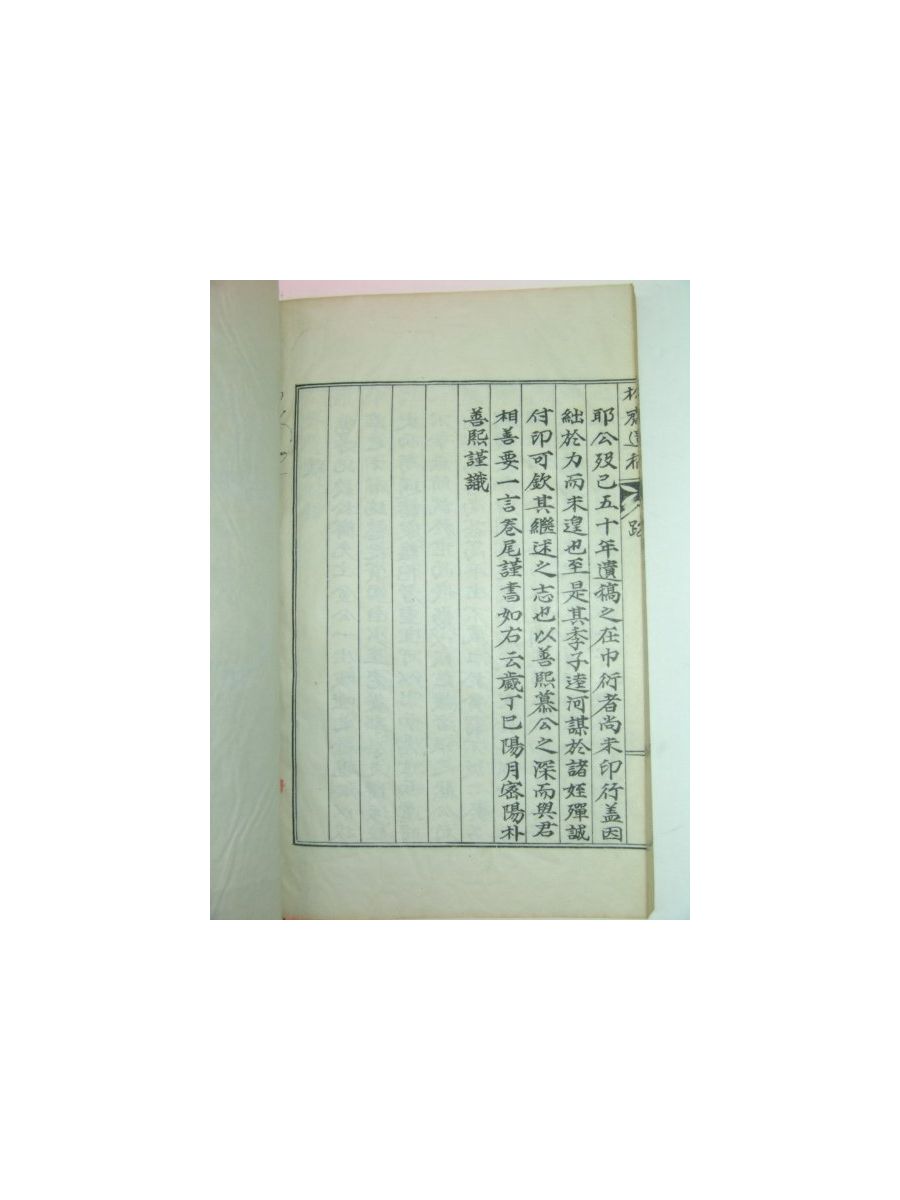 耶公歿已五十年遺稿之在巾衍者尚未印行盖因
絀於力而未遑也至是其季子逵河謀於諸姪殫誠
付印可欽其繼述之志也以善熙慕公之深而與君
相善要一言卷尾謹書如右云歲丁巳陽月密陽朴
善熙謹識